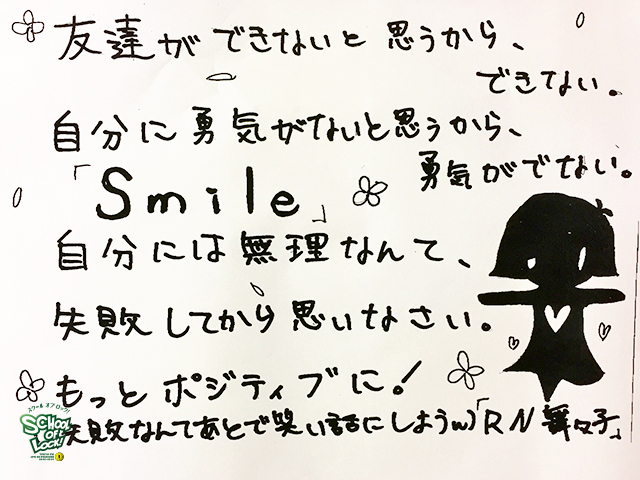 友達ができないと思うから、
できない。
自分に勇気がないと思うから、
勇気がでない。
「Smile」
自分には無理なんて、
失敗してから思いなさい。
もっとポジティブに!
失敗なんてあとで笑い話にしようw)「RN 舞々子」
スクール オブ ロック!
SCHOOL
OF
LOCK!